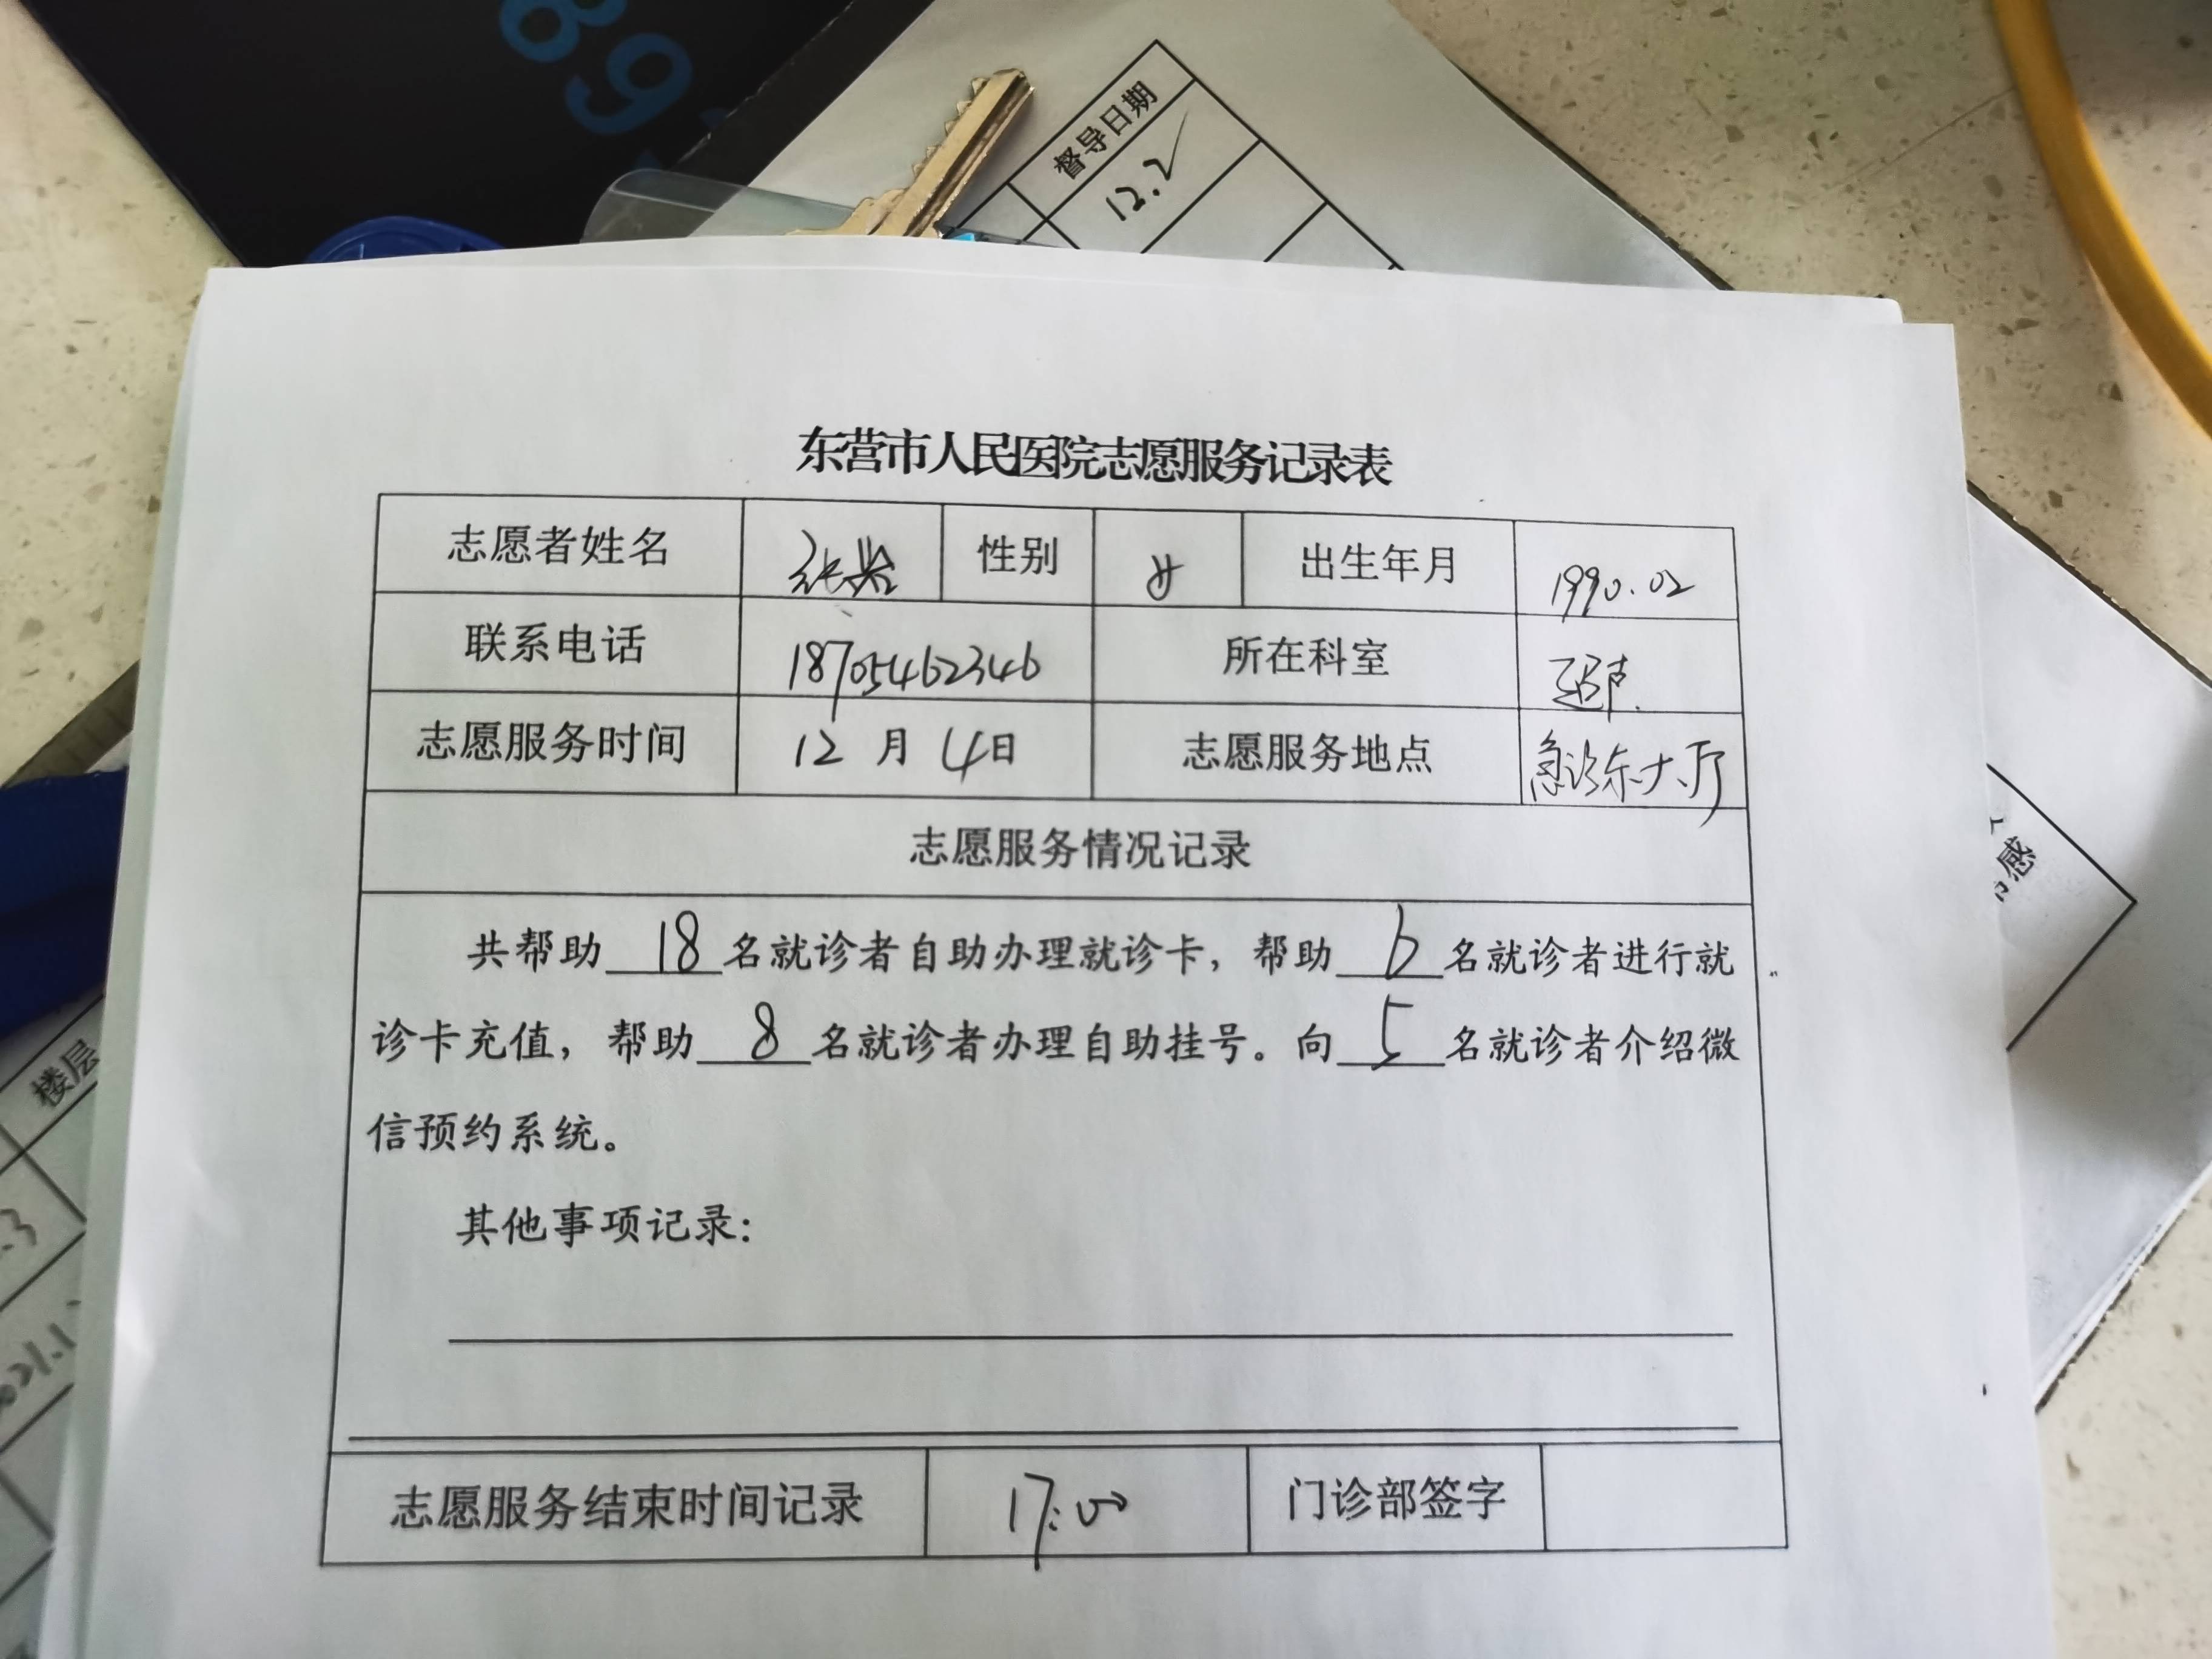 89
督导日期
12.2
东营市人民医院志愿服务记录表
志愿者姓名 张 性别 女 出生年月 1990.02
联系电话 18705462346 所在科室 超声
志愿服务时间 12月4日 志愿服务地点 急诊东大厅
志愿服务情况记录
共帮助18名就诊者自助办理就诊卡，帮助6名就诊者进行就
诊卡充值，帮助8名就诊者办理自助挂号。向5名就诊者介绍微
信预约系统。
其他事项记录：
志愿服务结束时间记录 17:00 门诊部签字
楼层
感